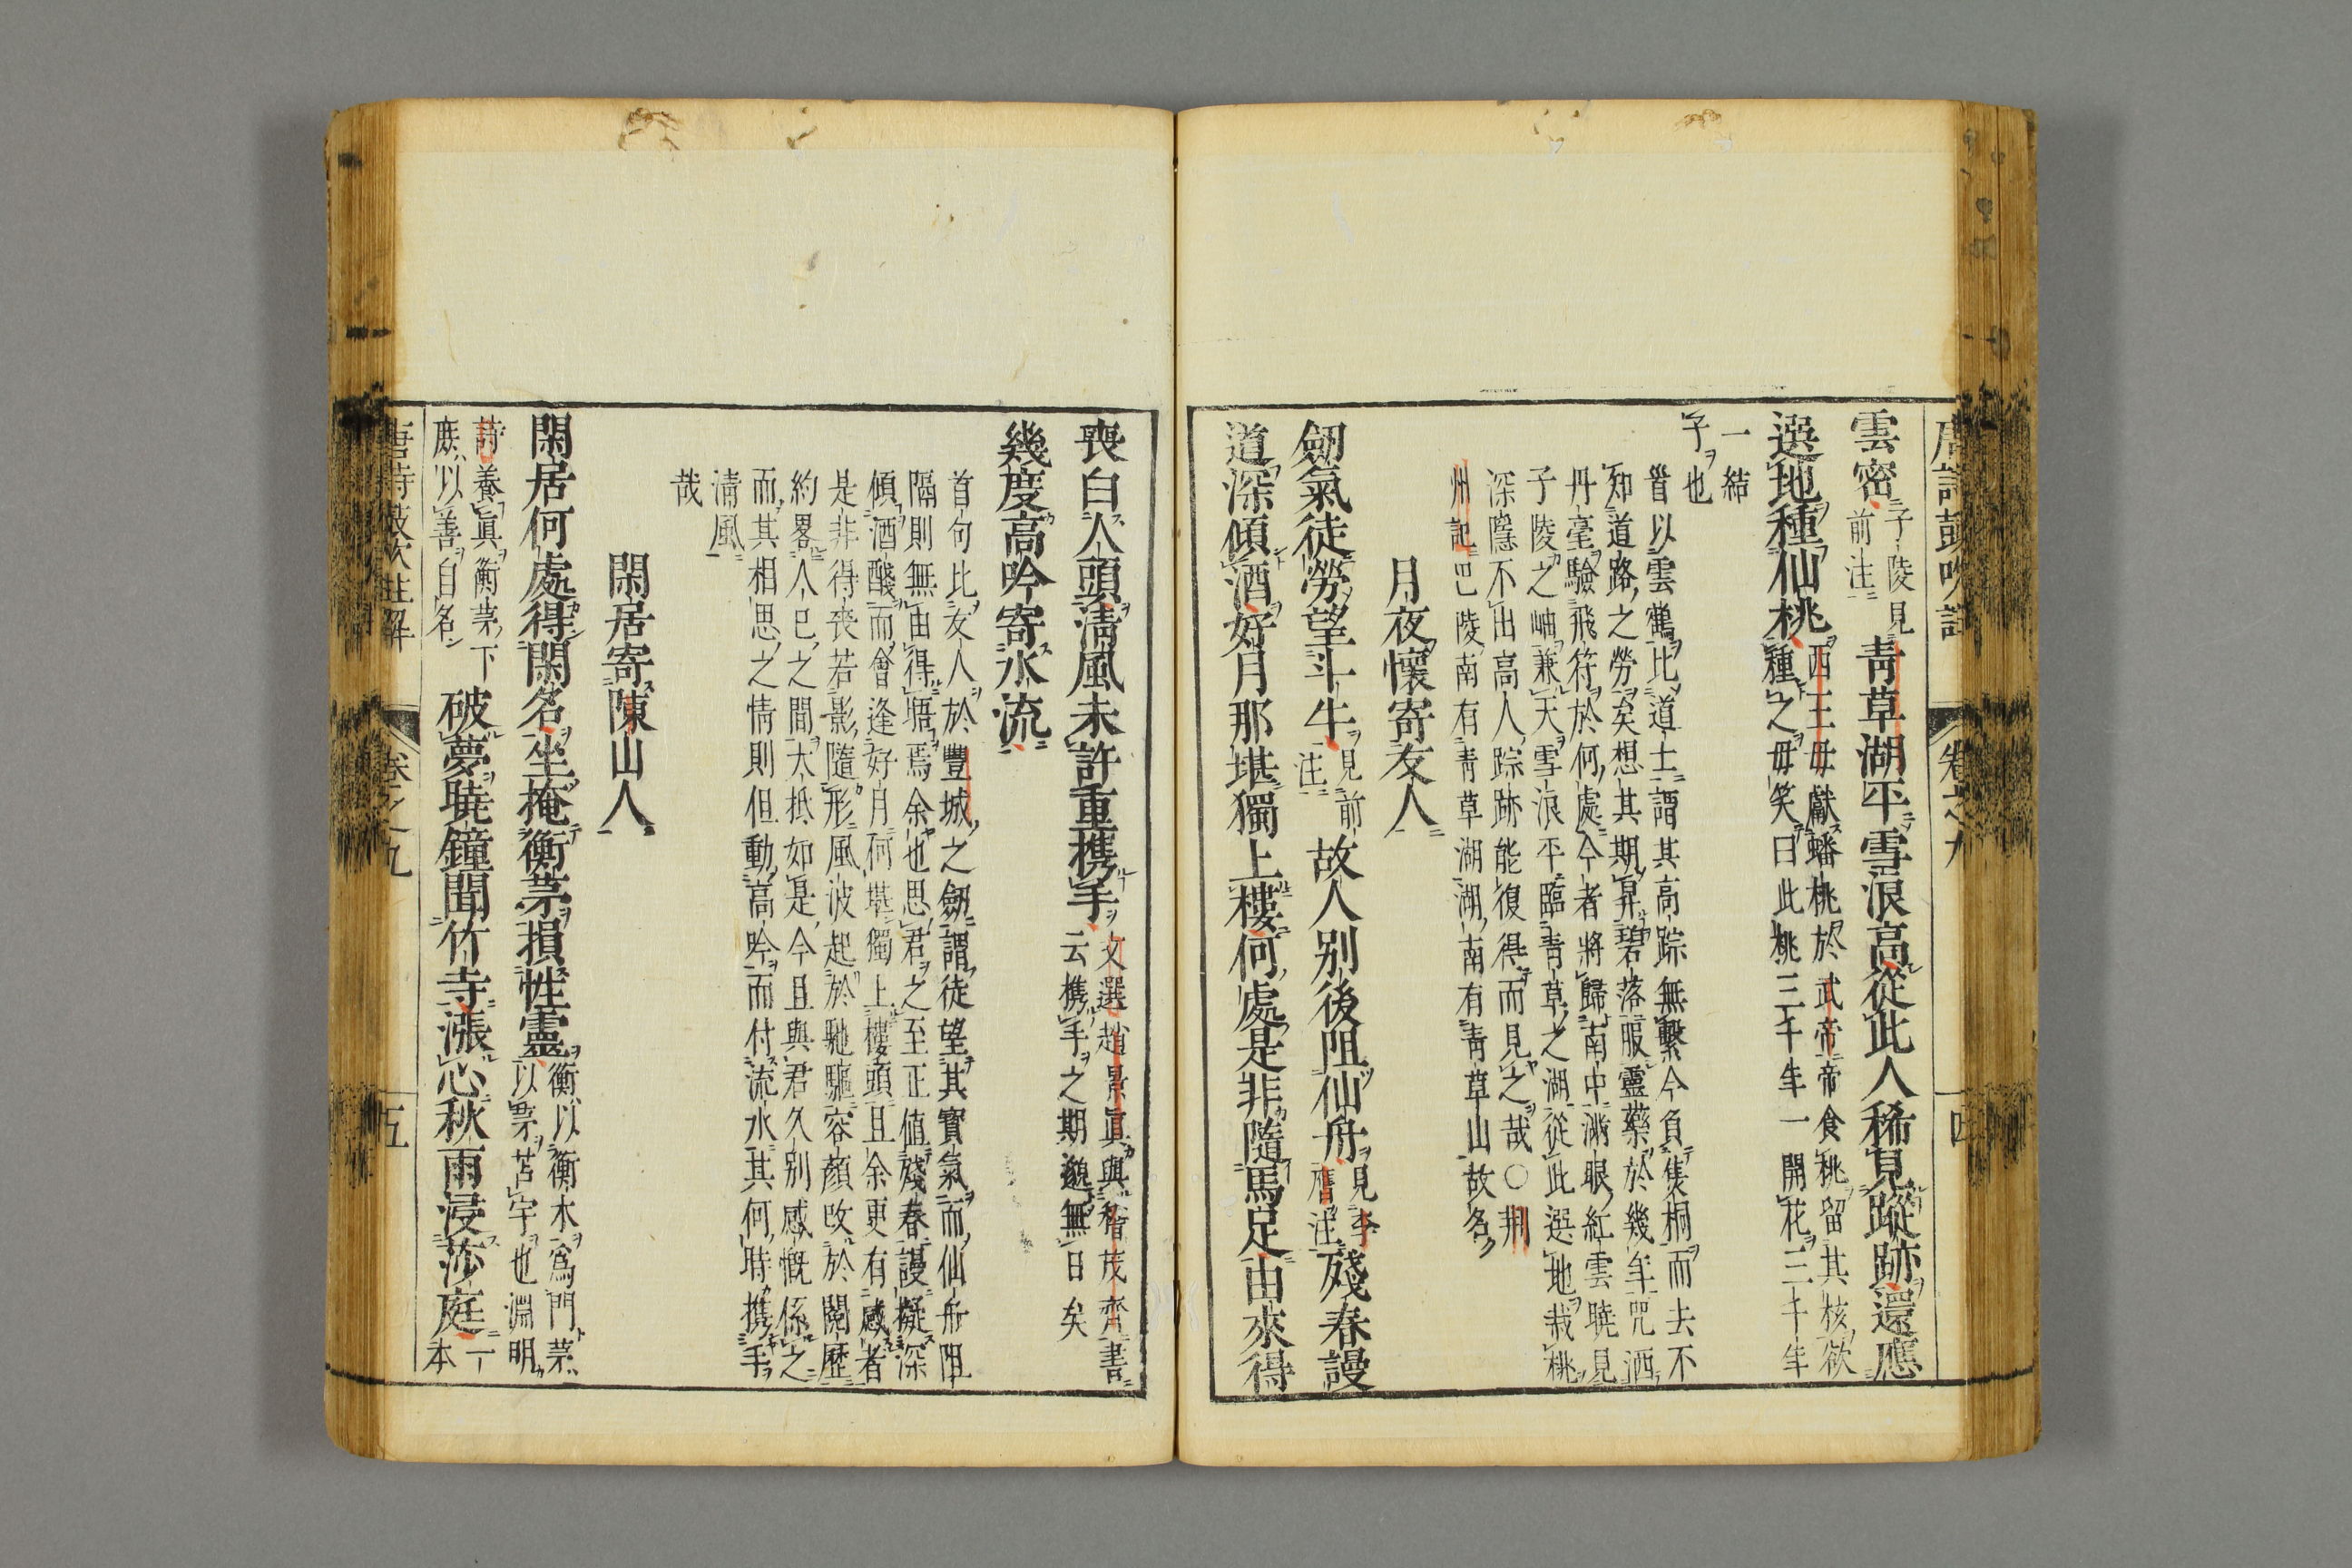 卷之九
四
雲密
子陵見
前注
青草湖平雪浪高從此人稀見蹤跡還應
選地種仙桃
西王母獻蟠桃於武帝帝食桃留其核欲
種之母笑曰此桃三千年一開花三千年
一結
子也
首以雲鶴比道士謂其高踪無繫今負隻桐而去不
知道路之勞矣想其期昇碧落服靈藥於幾年咒酒
丹毫驗飛符於何處今者將歸南中漸眼紅雲曉見
子陵之岫兼天雪浪平臨青草之湖從此選地栽桃
深隱不出高人踪跡能復得而見之哉○荆
州記巴陵南有青草湖湖南有青草山故名
月夜懷寄友人
劒氣徒勞望斗牛
見前
注
故人别後阻仙舟
見李
膺注
殘春謾
道深傾酒好月那堪獨上樓何處是非隨馬足由來得
喪白人頭清風未許重携手
文選趙景眞與嵇茂齊書
云携手之期邈無日矣
幾度高吟寄水流
首句比友人於豐城之劒謂徒望其寶氣而仙舟阻
隔則無由得晤焉余也思君之至正值殘春謾擬深
傾酒醆而會逢好月何堪獨上樓頭且余更有感者
是非得喪若影隨形風波起於馳驅容顏改於閱歷
約畧人已之間大抵如是今且與君久别感慨係之
而其相思之情則但動高吟而付流水其何時携手
清風
哉
閑居寄陳山人
閑居何處得閑名坐掩衡茅損性靈
衡以衡木爲門茅
以茅苫宇也淵明
詩養眞衡茅下
庶以善自名
破夢曉鐘聞竹寺漲心秋雨浸莎庭
一
本
唐詩鼓吹註解
卷之九
五